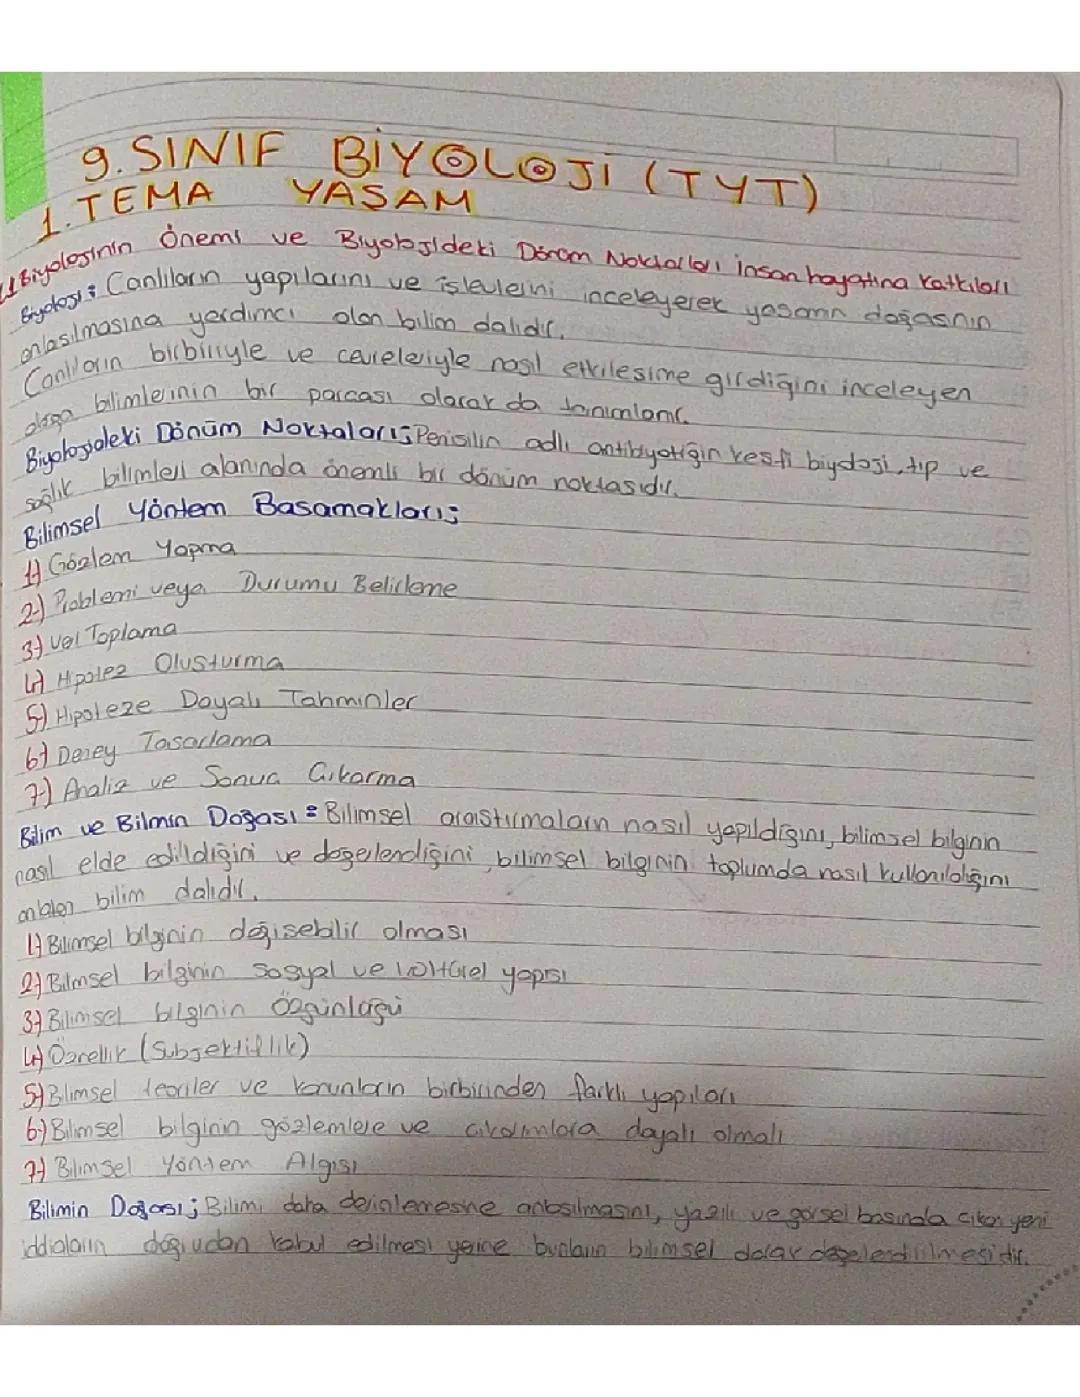 9. SINIF BİYOLOJİ (TYT)
1. TEMA YAŞAM
1.1 Biyolojinin Önemi ve Biyolojideki Dönüm Noktaları İnsan hayatına Katkıları
Biyoloji: Canlıların yapılarını ve işlevlerini inceleyerek yaşamın doğasının
anlaşılmasına yardımcı olan bilim dalıdır.
Canlıların birbiriyle ve çevreleriyle nasıl etkileşime girdiğini inceleyen
doğa bilimlerinin bir parçası olarak da tanımlanır.
Biyolojideki Dönüm Noktaları; Penisilin adlı antibiyotiğin keşfi biyoloji, tıp ve
sağlık bilimleri alanında önemli bir dönüm noktasıdır.
Bilimsel Yöntem Basamakları;
1-) Gözlem Yapma
2-) Problemi veya Durumu Belirleme
3-) Veri Toplama
4-) Hipotez Oluşturma
5-) Hipoteze Dayalı Tahminler
6-) Deney Tasarlama
7-) Analiz ve Sonuç Çıkarma
Bilim ve Bilimin Doğası: Bilimsel araştırmaların nasıl yapıldığını, bilimsel bilginin
nasıl elde edildiğini ve değerlendiğini, bilimsel bilginin toplumda nasıl kullanıldığını
anlatan bilim dalıdır.
1-) Bilimsel bilginin değişebilir olması
2-) Bilimsel bilginin sosyal ve kültürel yapısı
3-) Bilimsel bilginin Özgünlüğü
4-) Öznellik (Subjektiflik)
5-) Bilimsel teoriler ve kanunların birbirinden farklı yapıları
6-) Bilimsel bilginin gözlemlere ve çıkarımlara dayalı olmalı
7-) Bilimsel Yöntem Algısı
Bilimin Doğası; Bilimi daha derinlemesine anlaşılmasını, yazılı ve görsel basında çıkan yeni
iddiaların doğrudan kabul edilmesi yerine bunların bilimsel olarak değerlendirilmesidir.